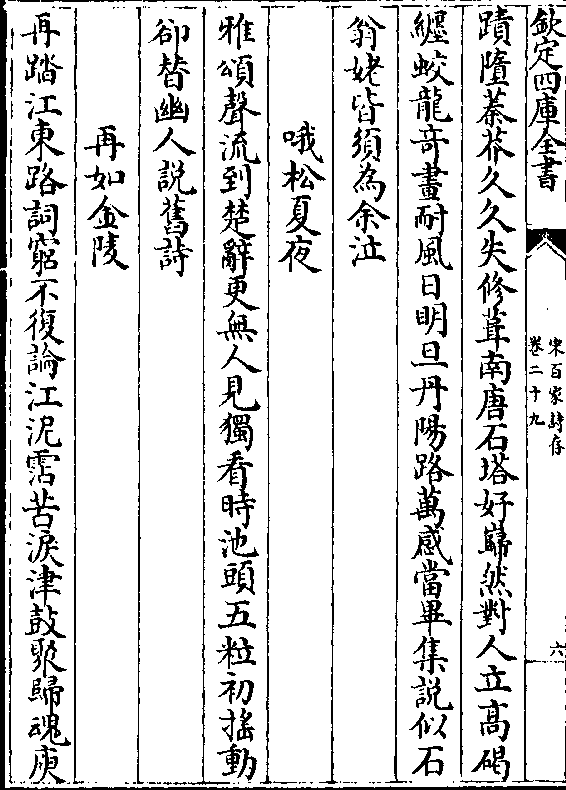 欽定四庫全書
宋百家詩存
卷二十九
六
蹟墮蓁莽久久失修葺南唐石塔好巋然對人立髙碣
纒蛟龍竒畫耐風日明旦丹陽路萬感當畢集説似石
翁姥皆須為余泣
哦松夏夜
雅頌聲流到楚辭更無人見獨看時池頭五粒初揺動
卻替幽人説舊詩
再如金陵
再踏江東路詞窮不復論江泥霑苦淚津鼓聚歸魂庾